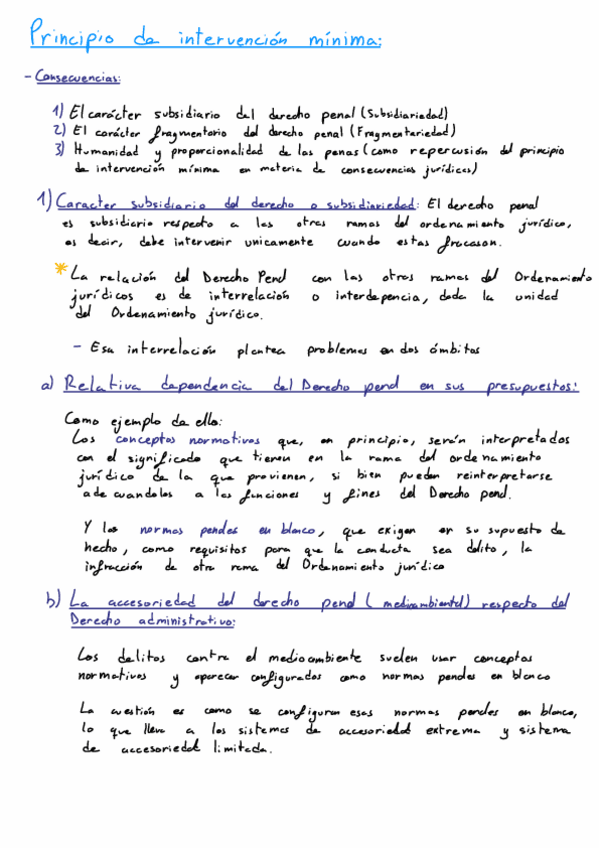 Principio de intervención mínima:
- Consecuencias:
1) El carácter subsidiario del derecho penal (Subsidiariedad)
2) El carácter fragmentario del derecho penal (Fragmentariedad)
3) Humanidad y proporcionalidad de las penas (como repercusión del principio
de intervención mínima en materia de consecuencias jurídicas)
1) Caracter subsidiario del derecho o subsidiariedad: El derecho penal
es subsidiario respecto a las otras ramas del ordenamiento jurídico,
es decir, debe intervenir unicamente cuando estas fracasan.
* La relación del Derecho Penal con las otras ramas del Ordenamiento
jurídicos es de interrelación o interdepencia, dada la unidad
del Ordenamiento jurídico.
- Esa interrelación plantea problemas en dos ámbitos
a) Relativa dependencia del Derecho penal en sus presupuestos:
Como ejemplo de ello:
Los conceptos normativos que, en principio, serán interpretados
con el significado que tienen en la rama del ordenamiento
jurídico de la que provienen, si bien pueden reinterpretarse
adecuandolos a las funciones y fines del Derecho penal.
Y las normas penales en blanco, que exigen en su supuesto de
hecho, como requisitos para que la conducta sea delito, la
infracción de otra rama del Ordenamiento jurídico
b) La accesoriedad del derecho penal (medioambiental) respecto del
Derecho administrativo:
Los delitos contra el medioambiente suelen usar conceptos
normativos y aparecer configurados como normas penales en blanco
La cuestión es como se configuran esas normas penales en blanco,
lo que lleva a los sistemas de accesoriedad extrema y sistema
de accesoriedad limitada.